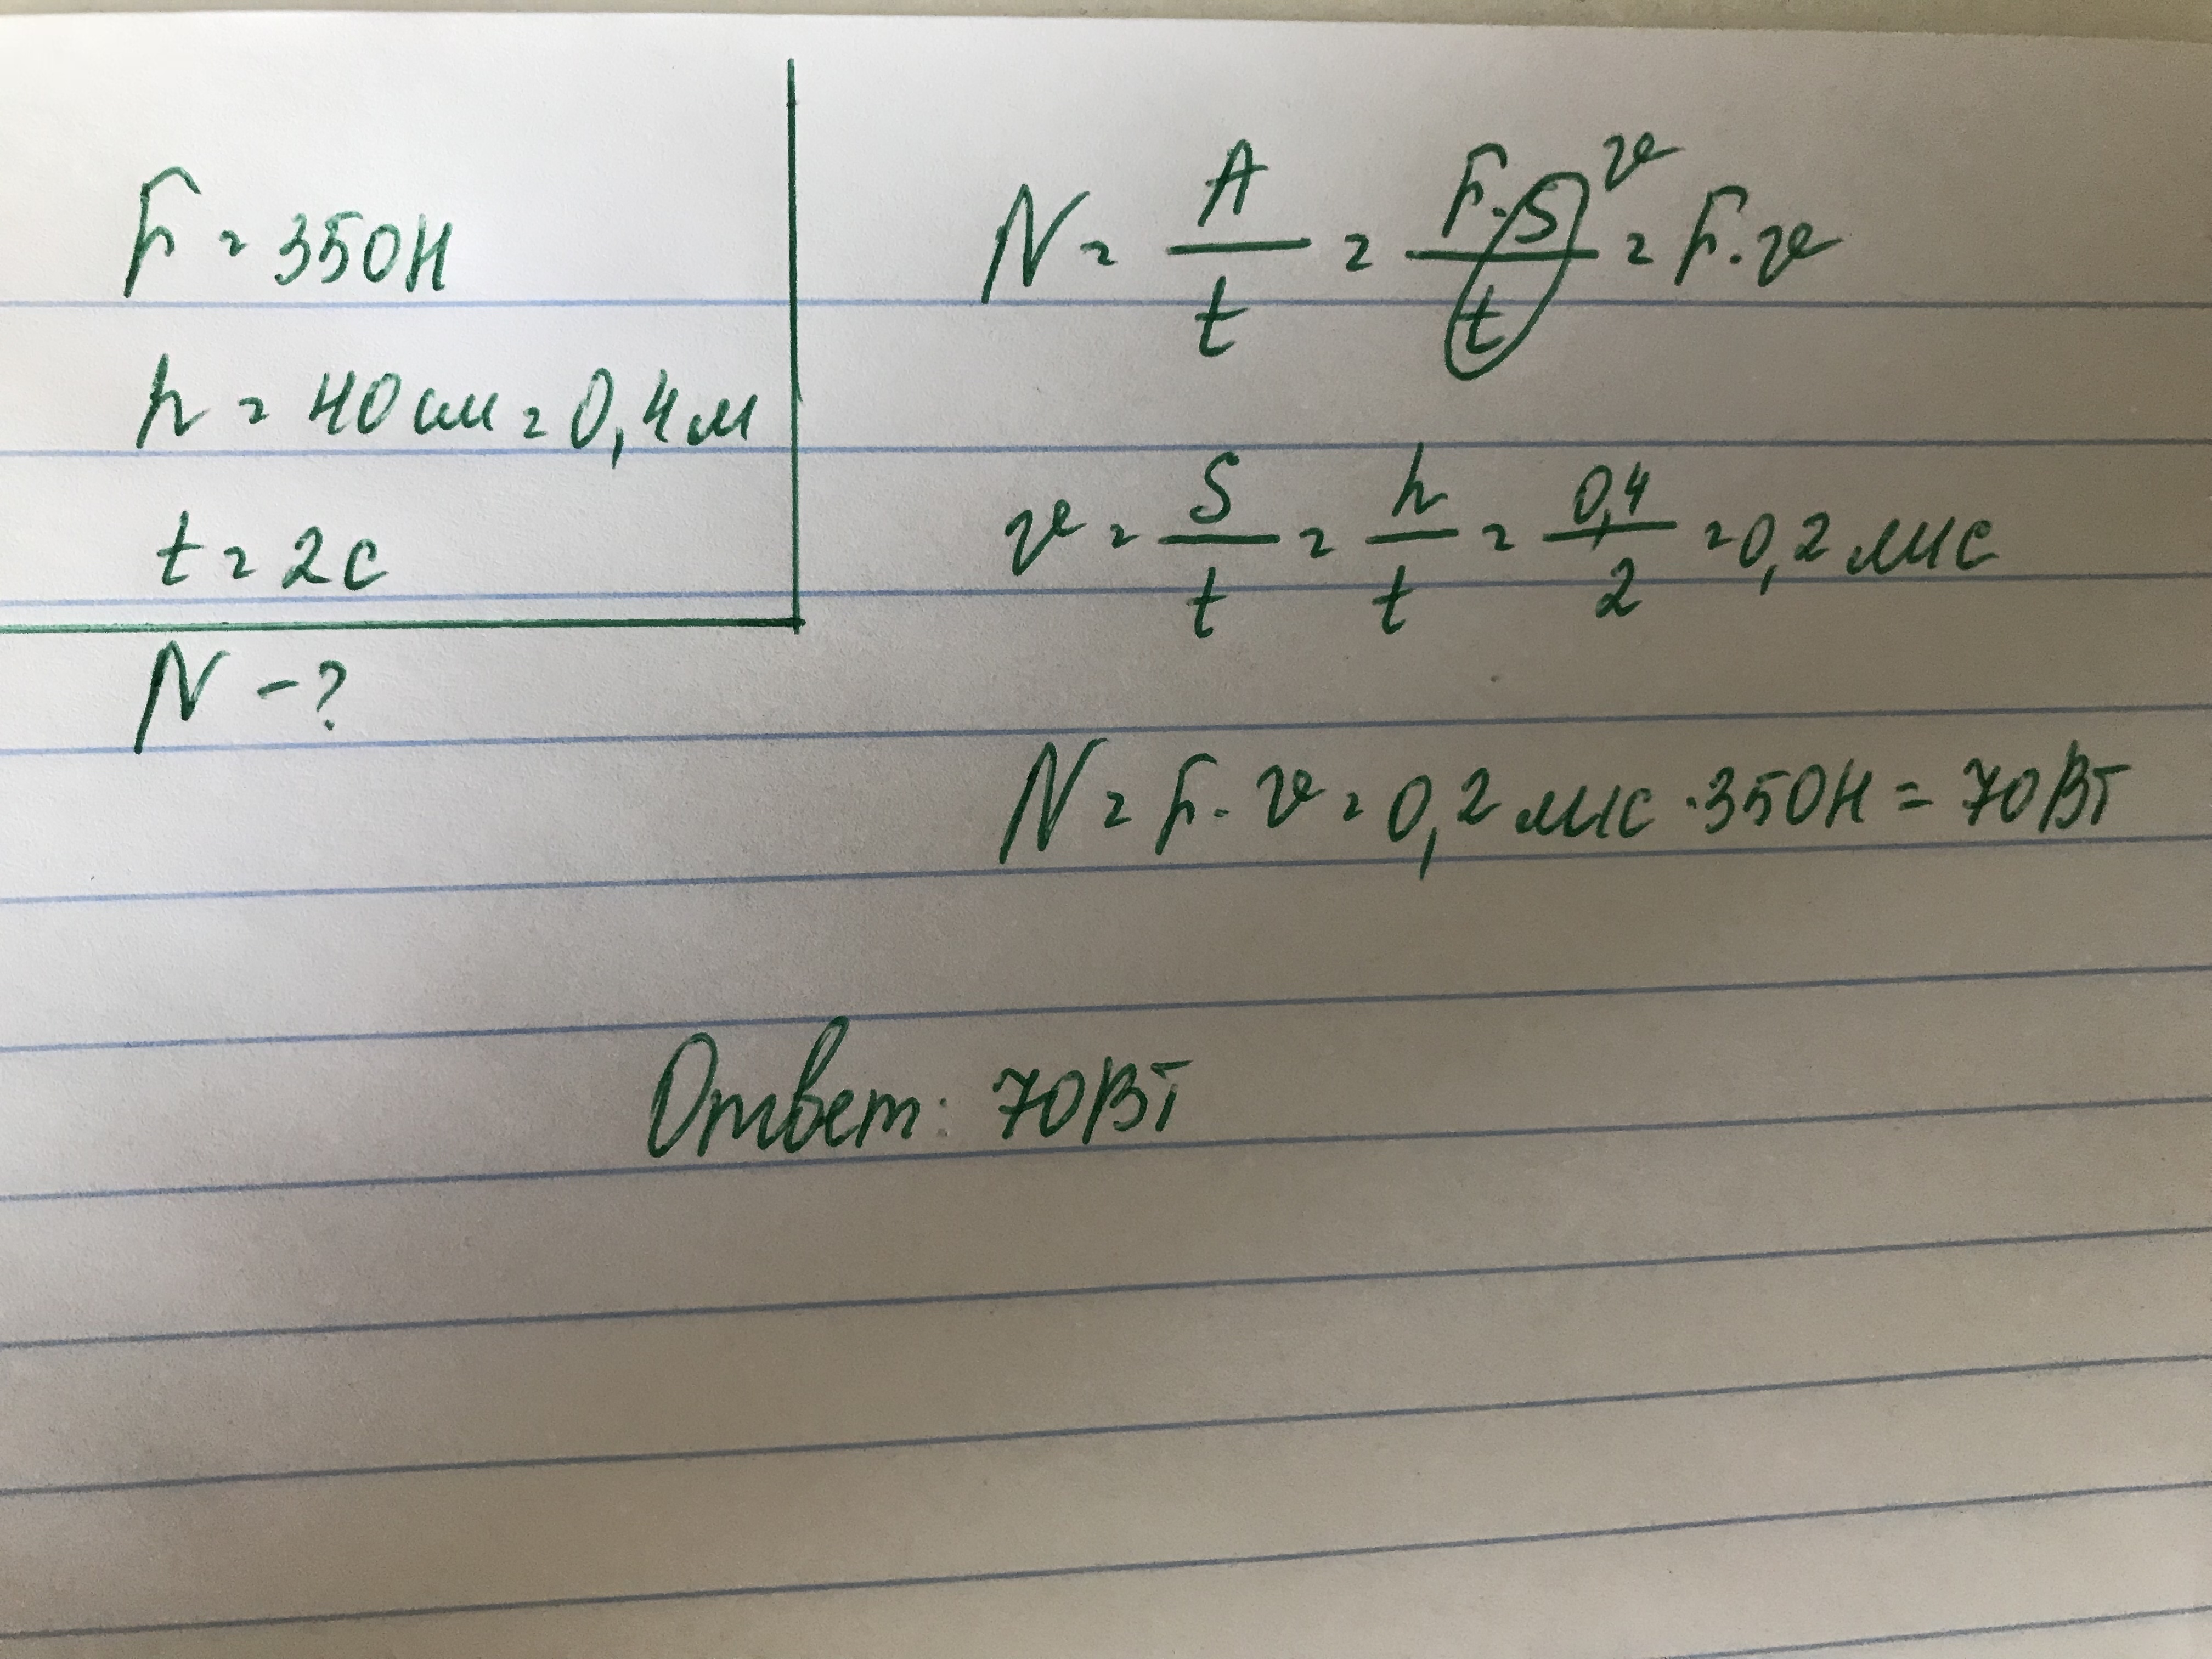 F = 350Н
h = 40 см = 0,4 м
t = 2 с
N - ?
N = A/t = F·S/t = F·v
v
v = S/t = h/t = 0,4/2 = 0,2 м/с
N = F·v = 0,2 м/с · 350Н = 70Вт
Ответ: 70Вт